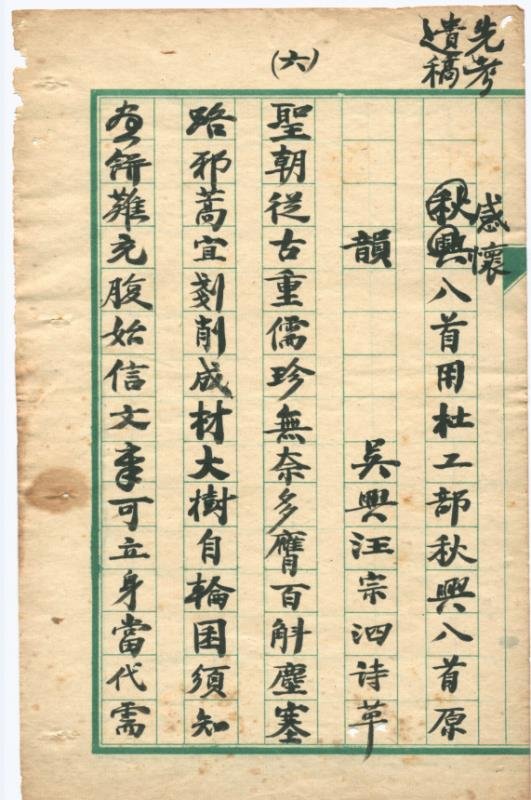 先考
遺稿
(六)
感懷
秋興八首用杜工部秋興八首原
韻　吳興汪宗泗詩草
聖朝從古重儒珍無奈多膺百斛塵塞
路邪蒿宜剗削成材大樹自輪囷須知
畫餅難充腹始信文章可立身當代需